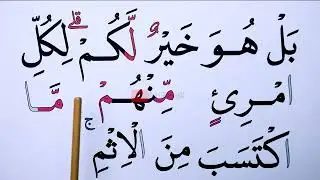 بَلْ هُوَ خَيْرٌ لَّكُمْ ۗ لِكُلِّ
امْرِئٍ مِّنْهُمْ مَّا
اكْتَسَبَ مِنَ الْاِثْمِ ۚ